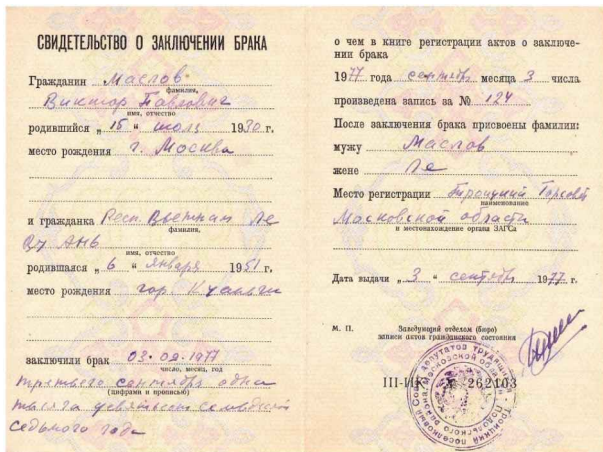 СВИДЕТЕЛЬСТВО О ЗАКЛЮЧЕНИИ БРАКА
Гражданин Маслов
фамилия,
Виктор Павлович
имя, отчество
родившийся „ 15 “ июля 1930 г.
место рождения г. Москва
и гражданка Респ. Вьетнам Ле
фамилия,
Ву Ань
имя, отчество
родившаяся „ 6 “ января 1951 г.
место рождения гор.
заключили брак 03.09.1977
число, месяц, год
третьего сентября одна
(цифрами и прописью)
тысяча девятьсот семьдесят
седьмого года
о чем в книге регистрации актов о заключе-
нии брака
1977 года сентябрь месяца 3 числа
произведена запись за № 124
После заключения брака присвоены фамилии:
мужу Маслов
жене Ле
Место регистрации Троицкий
наименование
Московской области
и местонахождение органа ЗАГСа
Дата выдачи „ 3 “ сентябрь 1977 г.
М. П. Заведующий отделом (бюро)
записи актов гражданского состояния
III-ИК № 262103